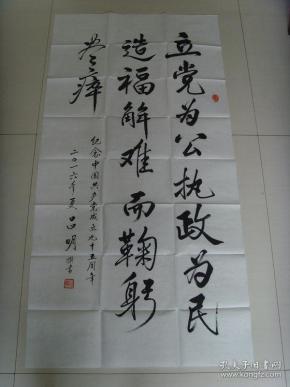 立党为公执政为民
造福解难而鞠躬
尽瘁
纪念中国共产党成立九十五周年
二〇一六年夏吕明敬书
孔夫子旧书网